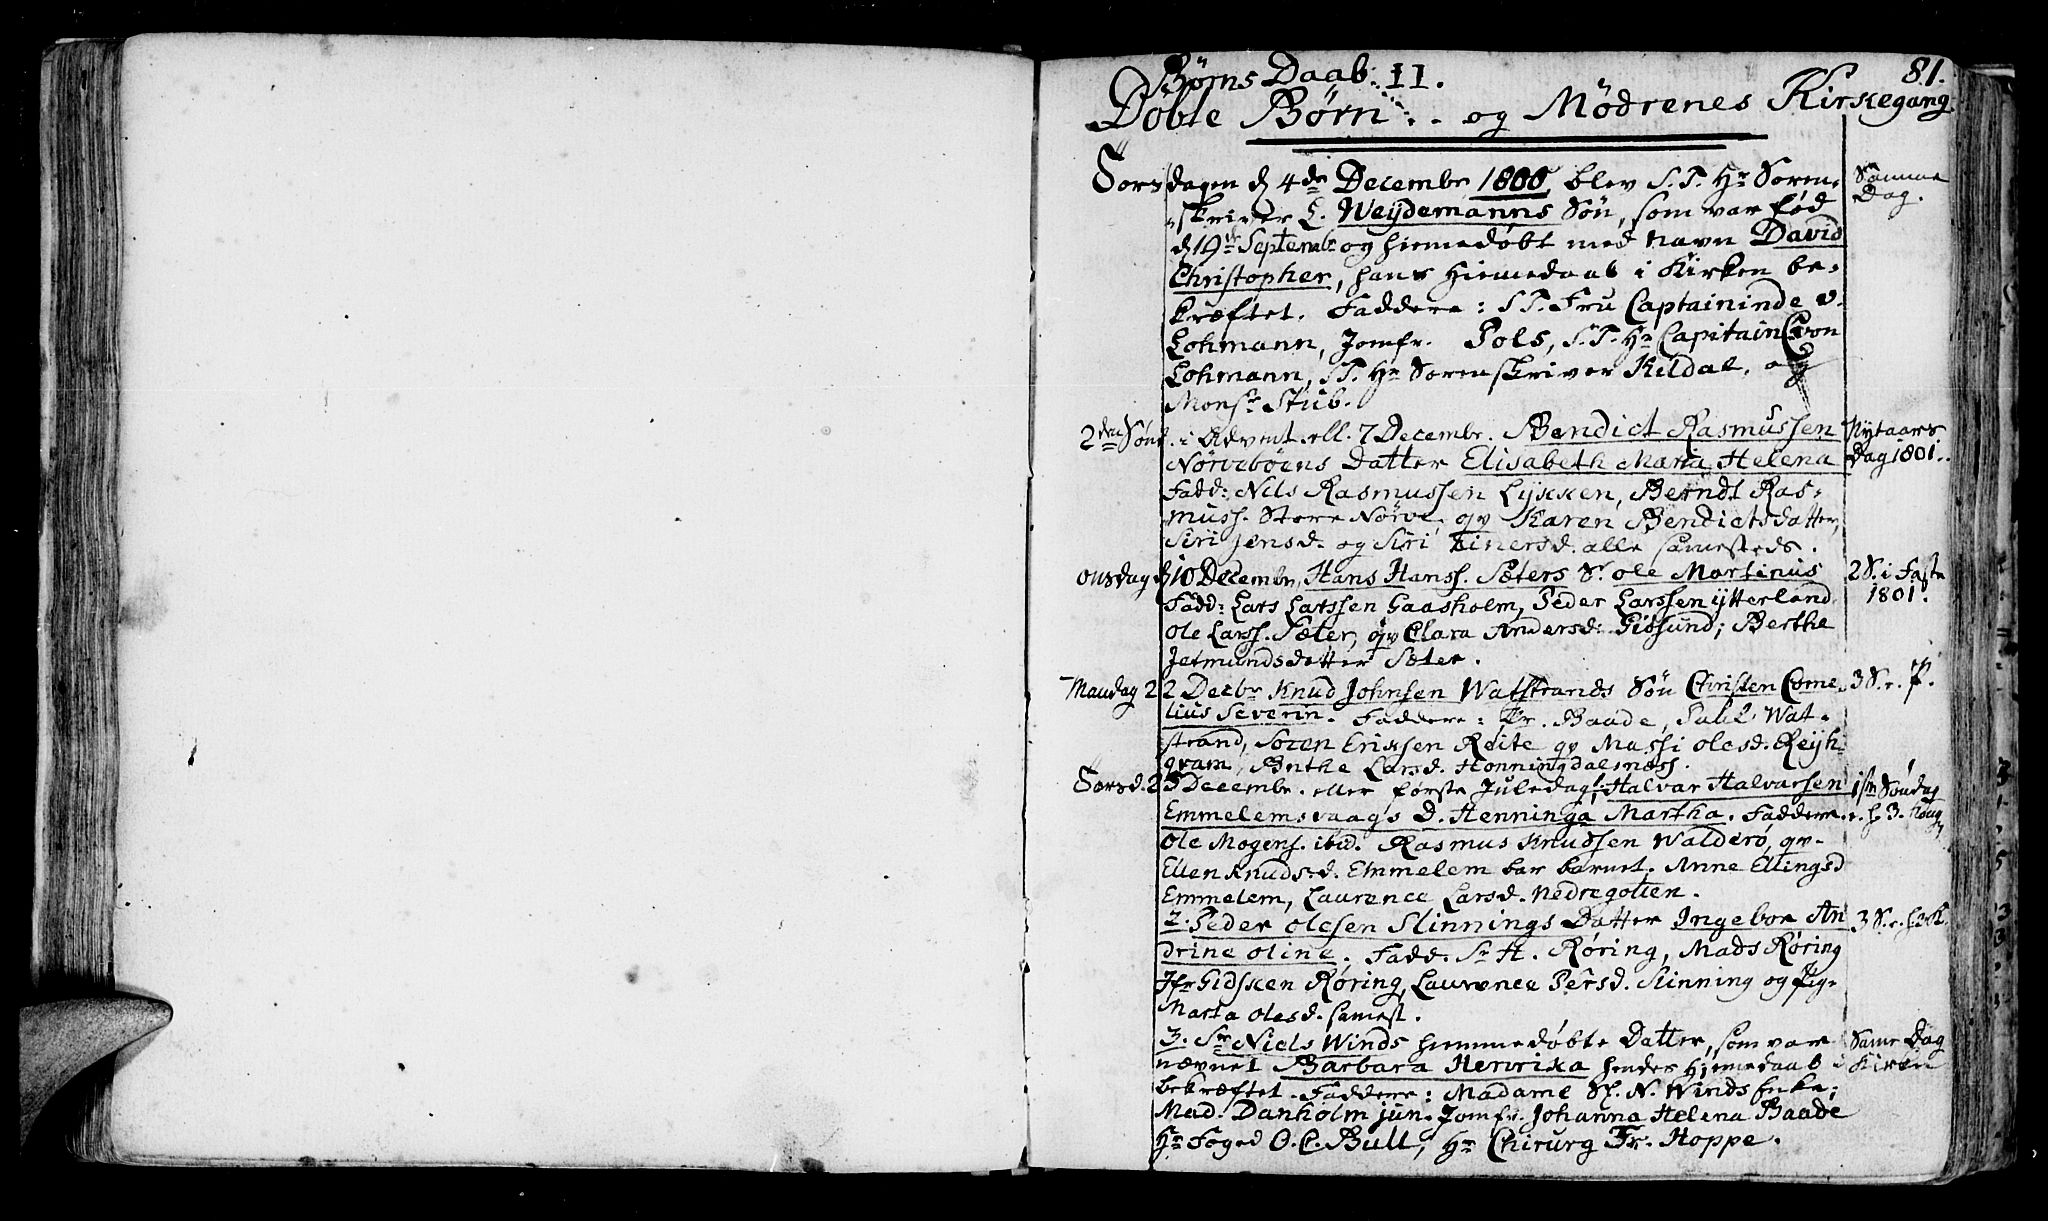 Børns Daab. II.
81.
Døbte Børn og Mødrenes Kirkegang
Torsdagen d 4de Decembr 1800 blev S.T. Hr Soren- Samme
skriver L. Weydemanns Søn, som var fød Dag.
d 19de Septembr og hiemedøbt med navn David
Christopher, hans Hiemedaab i Kirken be-
kræftet. Faddere: S.T. Fru Captaininde v.
Lohmann, Jomfr. Pols, S.T. Hr Capitain von
Lohmann, S.T. Hr Sorenskriver Kildal, og
Monsr Stub.
2den Sønd. i Advent ell. 7 Decembr. Bendict Rasmussen Nytaars
Nørvebøens Datter Elisabeth Maria Helena Dag 1801.
Fadd: Nils Rasmussen Lykken, Berndt Ras-
muss. Store Nørve, qv Karen Bendictsdatter,
Siri Jensd. og Siri Einersd. alle samesteds.
Onsdag d 10 Decembr. Hans Hanss. Sæters S. Ole Martinus 2 S. i Faste
Fadd: Lars Larssen Gaasholm, Peder Larssen Ytterland 1801.
Ole Larss. Sæter, qv Clara Andersd: Gidsund; Berthe
Jetmundsdatter Sæter.
Mandag 22 Decbr Knud Johnsen Watstrands Søn Christen Corne- 3 S. r. P.
lius Severin. Faddere: Hr. Baade, Wat-
strand, Soren Erixsen Reite qv Massi Olesd. Reyh-
gram, Birthe Larsd. Honningdalsness.
Torsd. 25 Decembr. eller første Juledag 1. Halvar Halvarsen 1ste Søndag
Emmelemsvaags D. Henninga Martha. Faddere e. h. 3. Kong.
Ole Mogens. ibid. Rasmus Knudsen Walderø, qv-
Ellen Knudsd. Emmelem bar barnet. Anne Ellingsd
Emmelem, Laurence Larsd. Nedregotten.
2. Peder Olesen Slinnings Datter Ingebor An 3 S. e. h. 3 K.
drine Oline. Fadd. Sr H. Røring, Mads Røring
Jfr Gidsken Røring, Laurence Persd. Slinning og Pig-
Marta Olesd. samest.
3. Sr Niels Winds hiemmedøbte Datter, som var Same Dag
nævnet Barbara Henrika hendes Hiemedaab i Kirken
bekræftet. Faddere: Madame Sl. N. Winds Enke;
Mad. Danholm jun. Jomfr. Johanna Helena Baade
Hr Foged O.C. Bull, Hr Chirurg Fr. Hoppe.